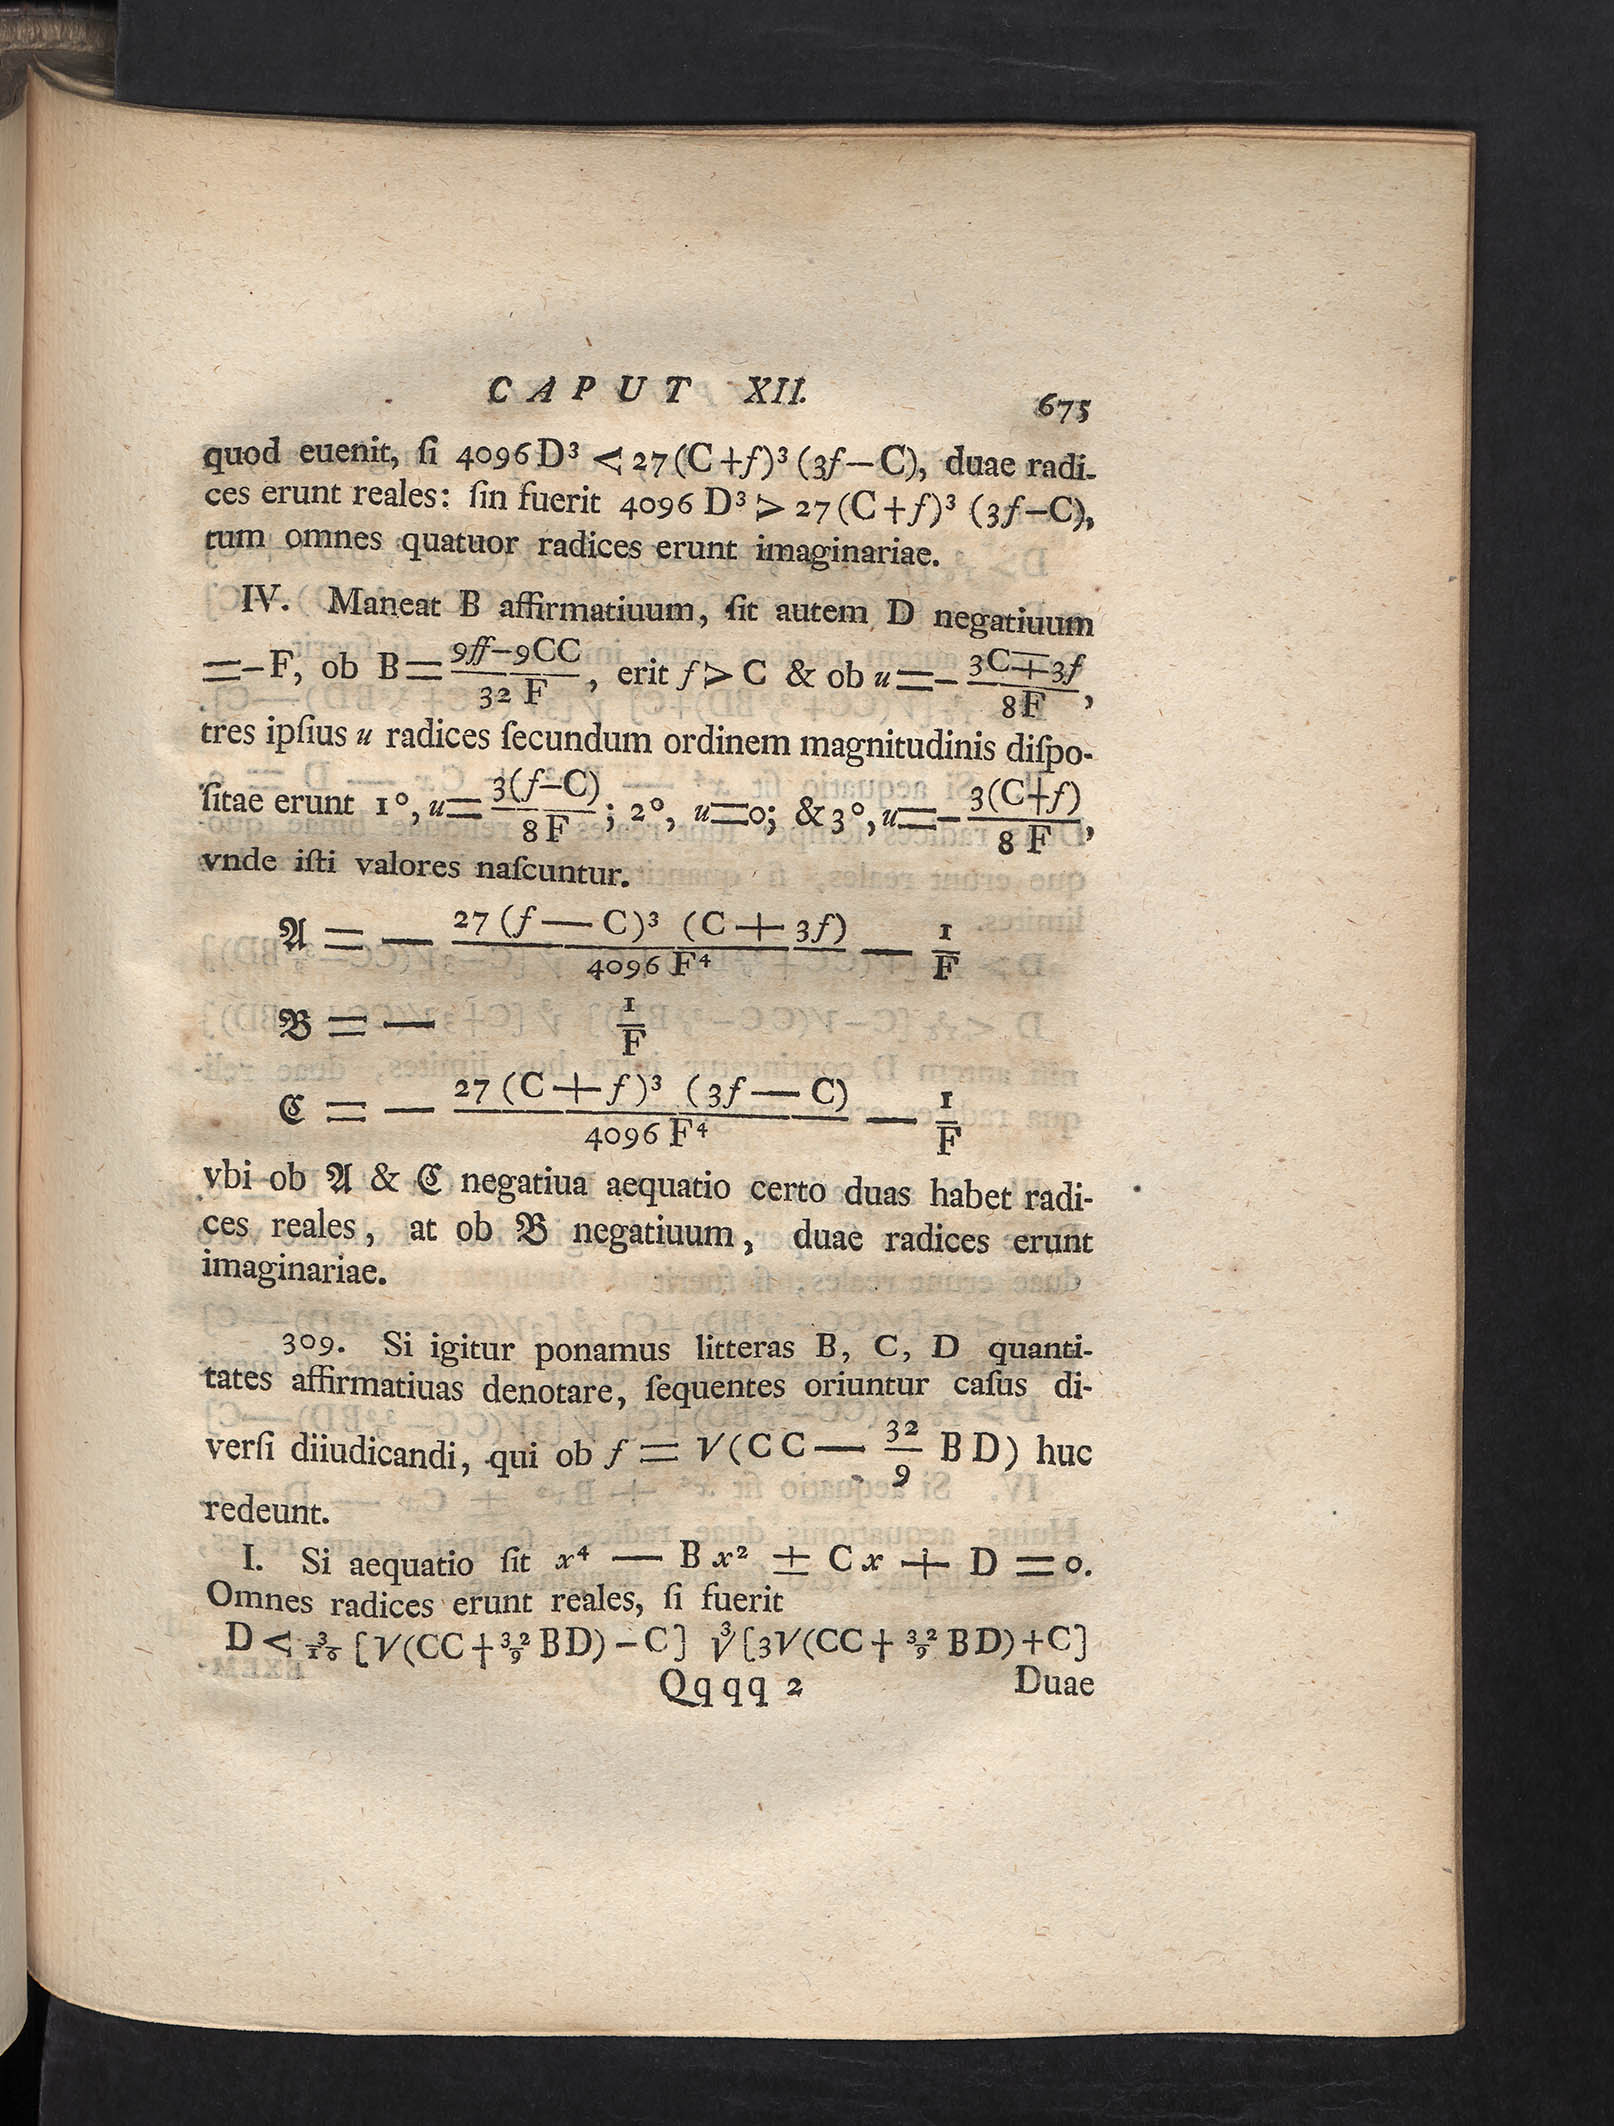 CAPUT XII. 675
quod euenit, ſi 4096 D³ < 27 (C+f)³ (3f−C), duae radi-
ces erunt reales: ſin fuerit 4096 D³ > 27 (C+f)³ (3f−C),
tum omnes quatuor radices erunt imaginariae.
IV. Maneat B affirmatiuum, ſit autem D negatiuum
=−F, ob B = (9ff−9CC)/(32 F), erit f > C & ob u = − (3C∓3f)/(8F),
tres ipſius u radices ſecundum ordinem magnitudinis diſpo-
ſitae erunt 1°, u = 3(f−C)/(8F); 2°, u=0; & 3°, u = − 3(C+f)/(8F),
vnde iſti valores naſcuntur.
𝔄 = − 27 (f − C)³ (C + 3f)/(4096 F⁴) − 1/F
𝔅 = − 1/F
ℭ = − 27 (C + f)³ (3f − C)/(4096 F⁴) − 1/F
vbi ob 𝔄 & ℭ negatiua aequatio certo duas habet radi-
ces reales, at ob 𝔅 negatiuum, duae radices erunt
imaginariae.
309. Si igitur ponamus litteras B, C, D quanti-
tates affirmatiuas denotare, ſequentes oriuntur caſus di-
verſi diiudicandi, qui ob f = √(CC − 32/9 BD) huc
redeunt.
I. Si aequatio ſit x⁴ − Bx² ± Cx + D = 0.
Omnes radices erunt reales, ſi fuerit
D < 3/16 [√(CC + 32/9 BD) − C] ∛[3√(CC + 32/9 BD) + C]
Qqqq 2 Duae